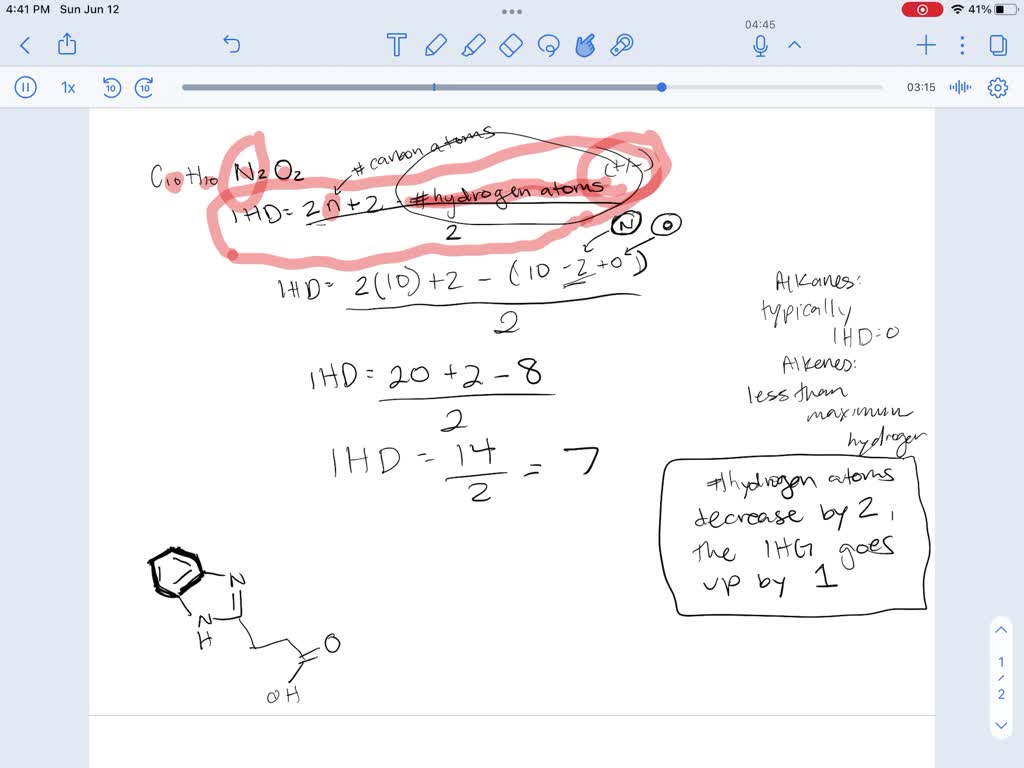 4:41 PM Sun Jun 12
41%
04:45
1x
10
10
03:15
# carbon atoms
(+/-)
C10H10 N2O2
IHD= 2n+2 - #hydrogen atoms
2
N O
IHD= 2(10)+2 - (10 -2+0)
2
IHD = 20+2-8
2
IHD = 14 = 7
2
Alkanes:
typically
IHD=0
Alkenes:
less than
maximum
hydrogen
#hydrogen atoms
decrease by 2,
the IHG goes
up by 1
N
N
H
O
OH
1
/
2